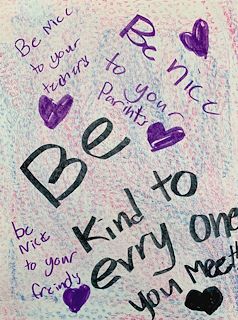 Be nice
to your
teachers
Be nice
to your
Parints
Be
Kind to
evry one
you meet!
be
nice
to your
freindy